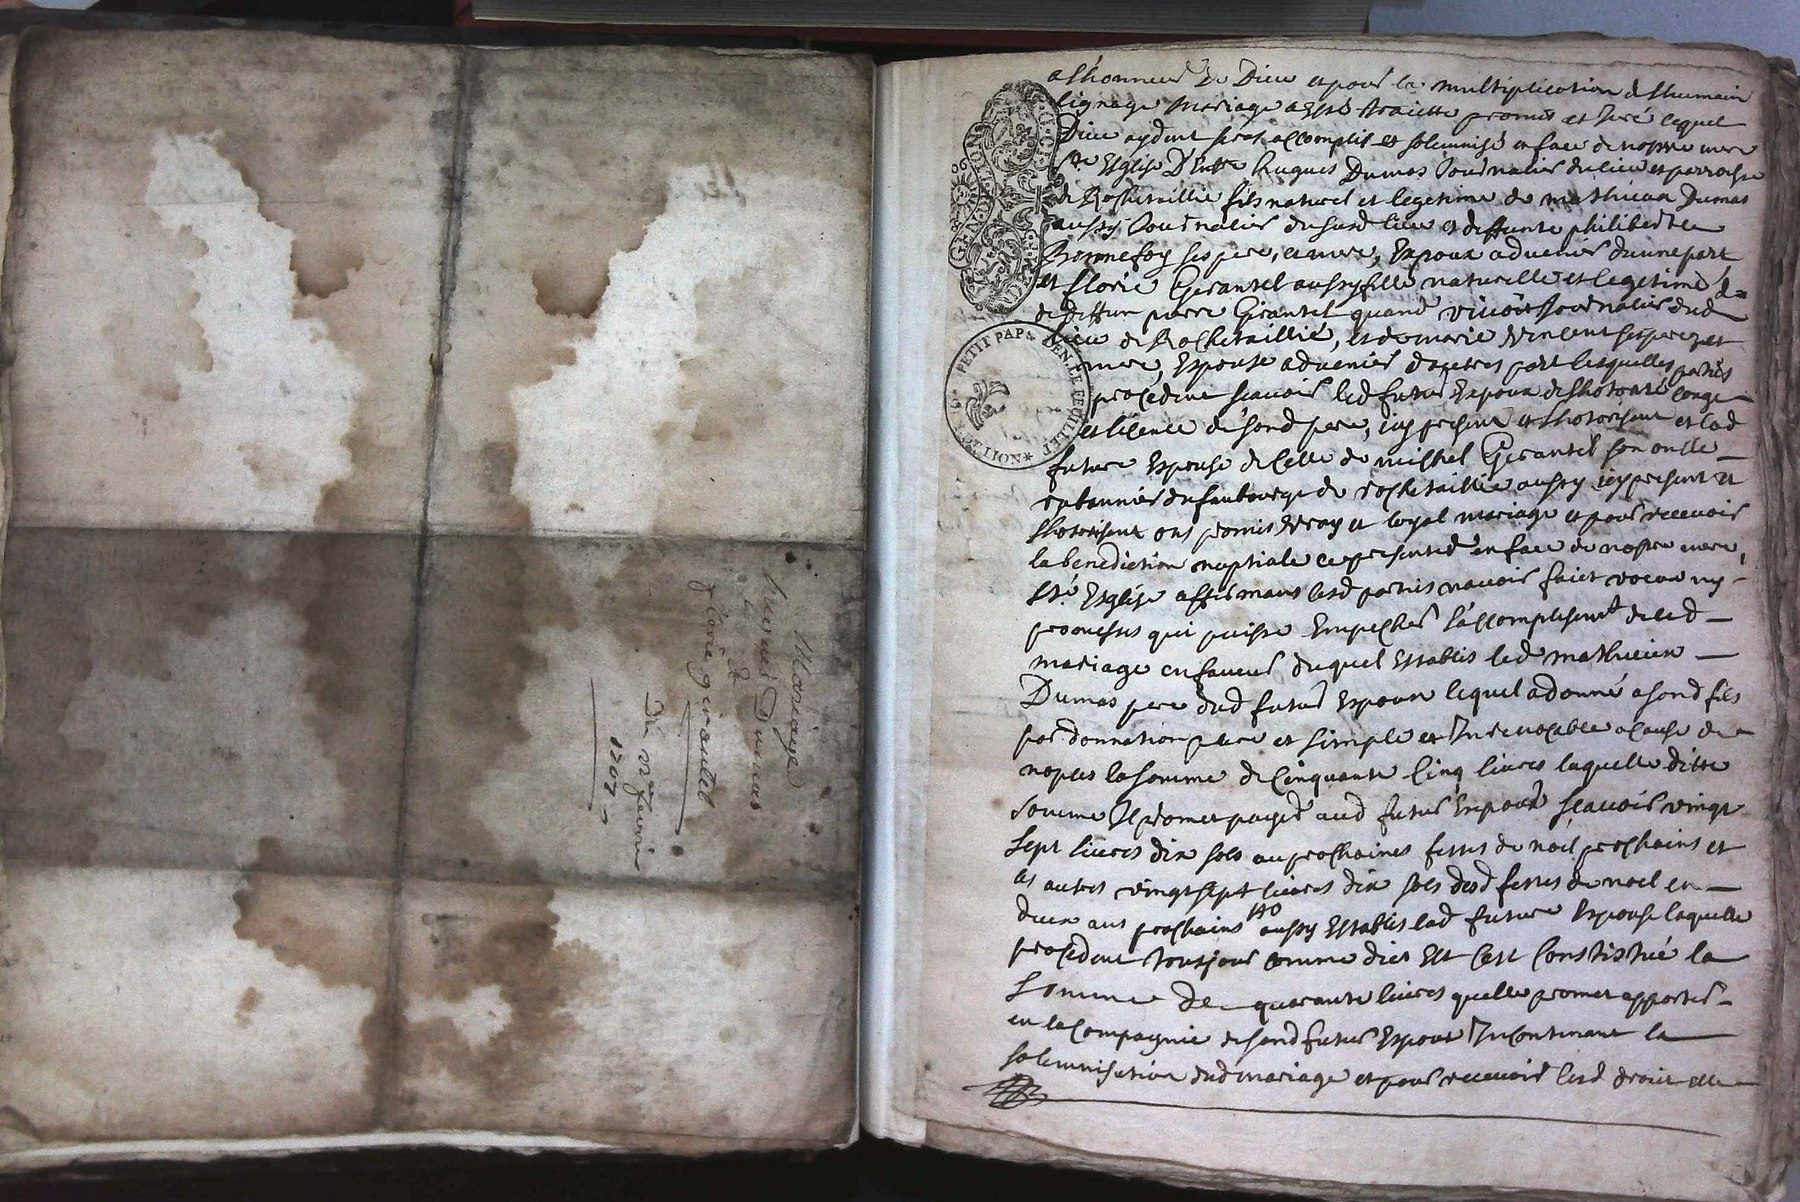 Mariage
hugues Dumas
&
florie girantel
Du 22e feuvrier
1707
GENERAL
LION
PETIT PAP
LE FEUILLET
LION
a lhonneur de Dieu et pour la multiplication de lhumain
lignage mariage a esté traitté promis et juré lequel
Dieu aydant sera accomplit et solemnisé en face de nostre mere
Ste Esglise Entre hugues Dumas Journalier du lieu et parroisse
de Rochetaillié fils naturel et legitime de mathieu Dumas
aussy Journalier dususd lieu et deffunte philiberte
Bonnefoy ses pere et mere, Expoux aduenir dune part
et florie Girantel aussy fille naturelle et legitime
de deffun pierre Girantel quand viuoit Journalier dud
lieu de Rochetaillié, et de marie Vincent ses pere et
mere, Espouse aduenir dautres part lesquelles parties
procedant scauoir led futur Expoux de lhotorité conge
et licence de sond pere, icy present et lhotorisant et lad
future Espouse de celle de michel Girantel son oncle
rubannier du faubourg de rochetaillié aussy icy present et
lhotorisant ont promis vray et loyal mariage et pour receuoir
la benediction nuptiale ce presenter en face de nostre mere
Ste Esglise affirmans lesd parties nauoir faict voeux ny
promesses qui puisse Empecher laccomplisement dud
mariage en faueur duquel Establis led mathieu
Dumas pere dud futur Espoux lequel a donné a sond fils
par donnation pure et simple et Inreuocable a cause de
nopces la somme de Cinquante Cinq liures laquelle ditte
somme Il promet payer aud futur Expoux scauoir vingt
sept liures dix sols au prochaines festes de noel prochains et
les autres vingt sept liures dix sols desd festes de noel en
deux ans prochains aussy Establis lad future Espouse laquelle
procedant tousjour comme dict Est cest Constistué la
somme de quarante liures quelle promet apporter
en la Compagnie de sond futur Expoux Incontinant la
solemnisation dud mariage et pour receuoir lesd droit elle